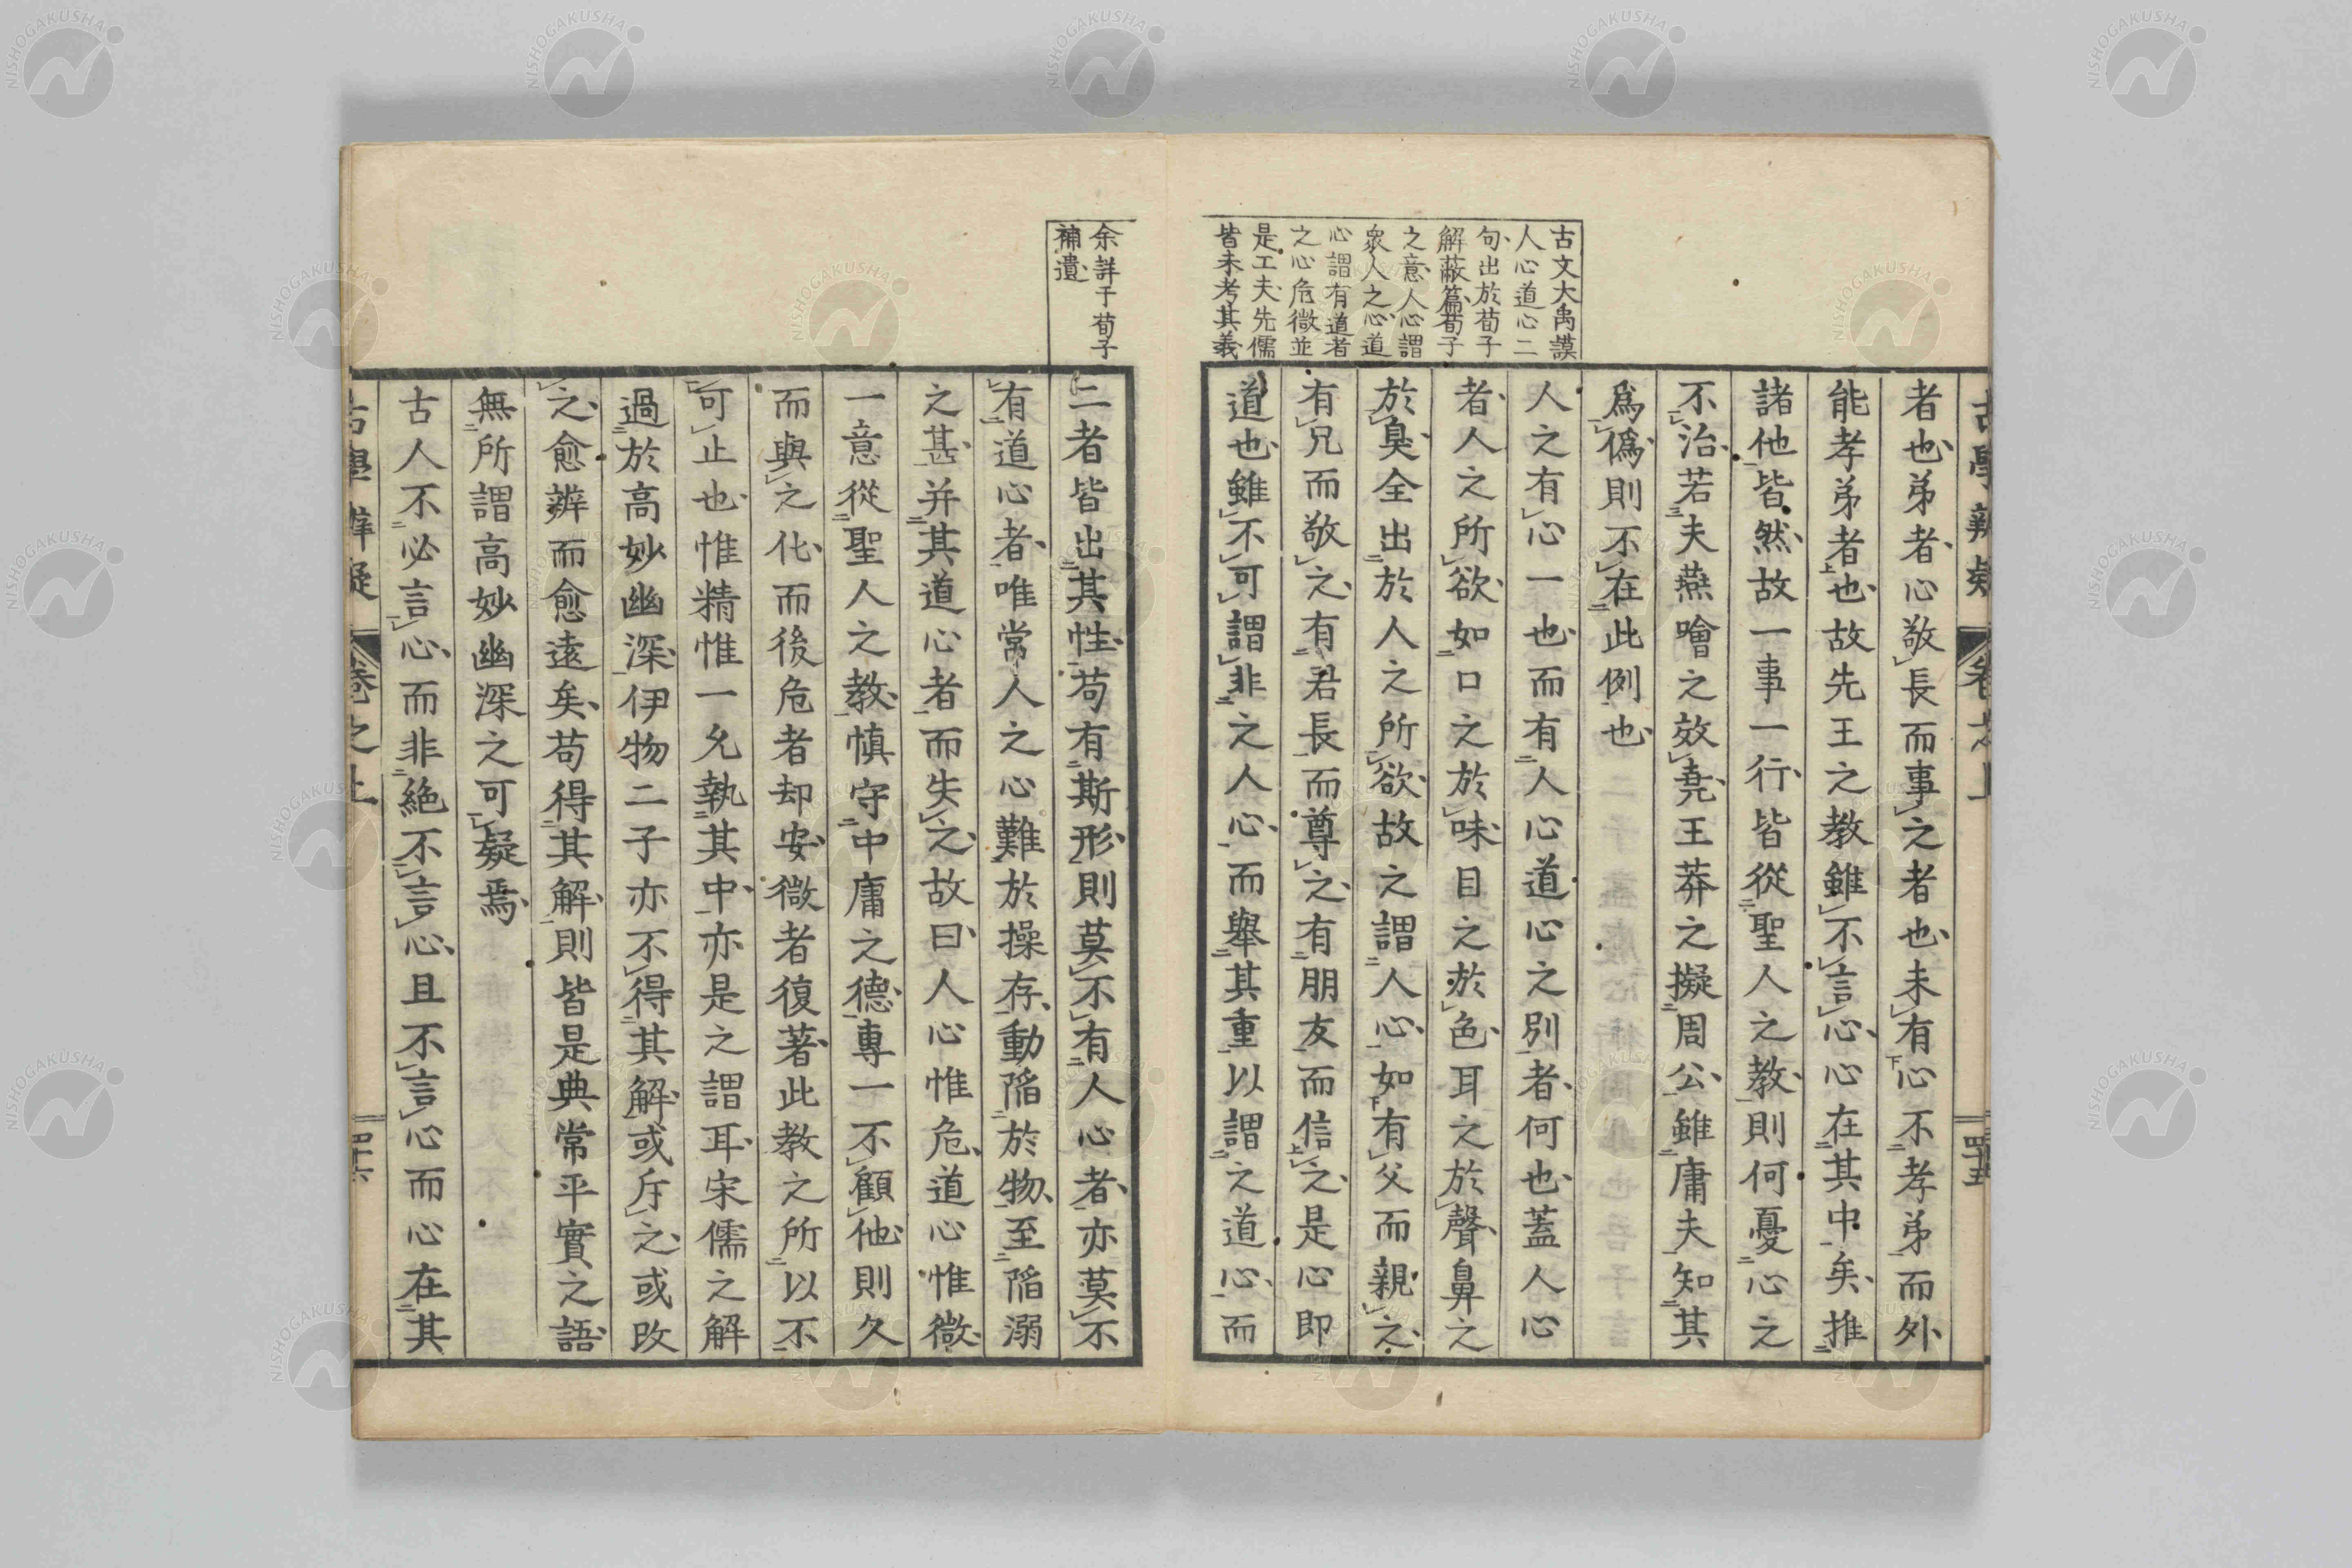 古學辨疑 卷之上 四十五
者也弟者心敬長而事之者也未有心不孝弟而外
能孝弟者也故先王之教雖不言心心在其中矣推
諸他皆然故一事一行皆從聖人之教則何憂心之
不治若夫燕噲之效堯王莽之擬周公雖庸夫知其
爲僞則不在此例也
人之有心一也而有人心道心之別者何也蓋人心
者人之所欲如口之於味目之於色耳之於聲鼻之
於臭全出於人之所欲故之謂人心如有父而親之
有兄而敬之有君長而尊之有朋友而信之是心即
道也雖不可謂非之人心而舉其重以謂之道心而
古文大禹謨
人心道心二
句出於荀子
解蔽篇荀子
之意人心謂
衆人之心道
心謂有道者
之心危微並
是工夫先儒
皆未考其義
二者皆出其性苟有斯形則莫不有人心者亦莫不
有道心者唯常人之心難於操存動陷於物至陷溺
之甚并其道心者而失之故曰人心惟危道心惟微
一意從聖人之教慎守中庸之德專一不顧他則久
而與之化而後危者却安微者復著此教之所以不
可止也惟精惟一允執其中亦是之謂耳宋儒之解
過於高妙幽深伊物二子亦不得其解或斥之或改
之愈辨而愈遠矣苟得其解則皆是典常平實之語
無所謂高妙幽深之可疑焉
古人不必言心而非絕不言心且不言心而心在其
余詳于荀子
補遺
古學辨疑 卷之上 四十六
NISHOGAKUSHA